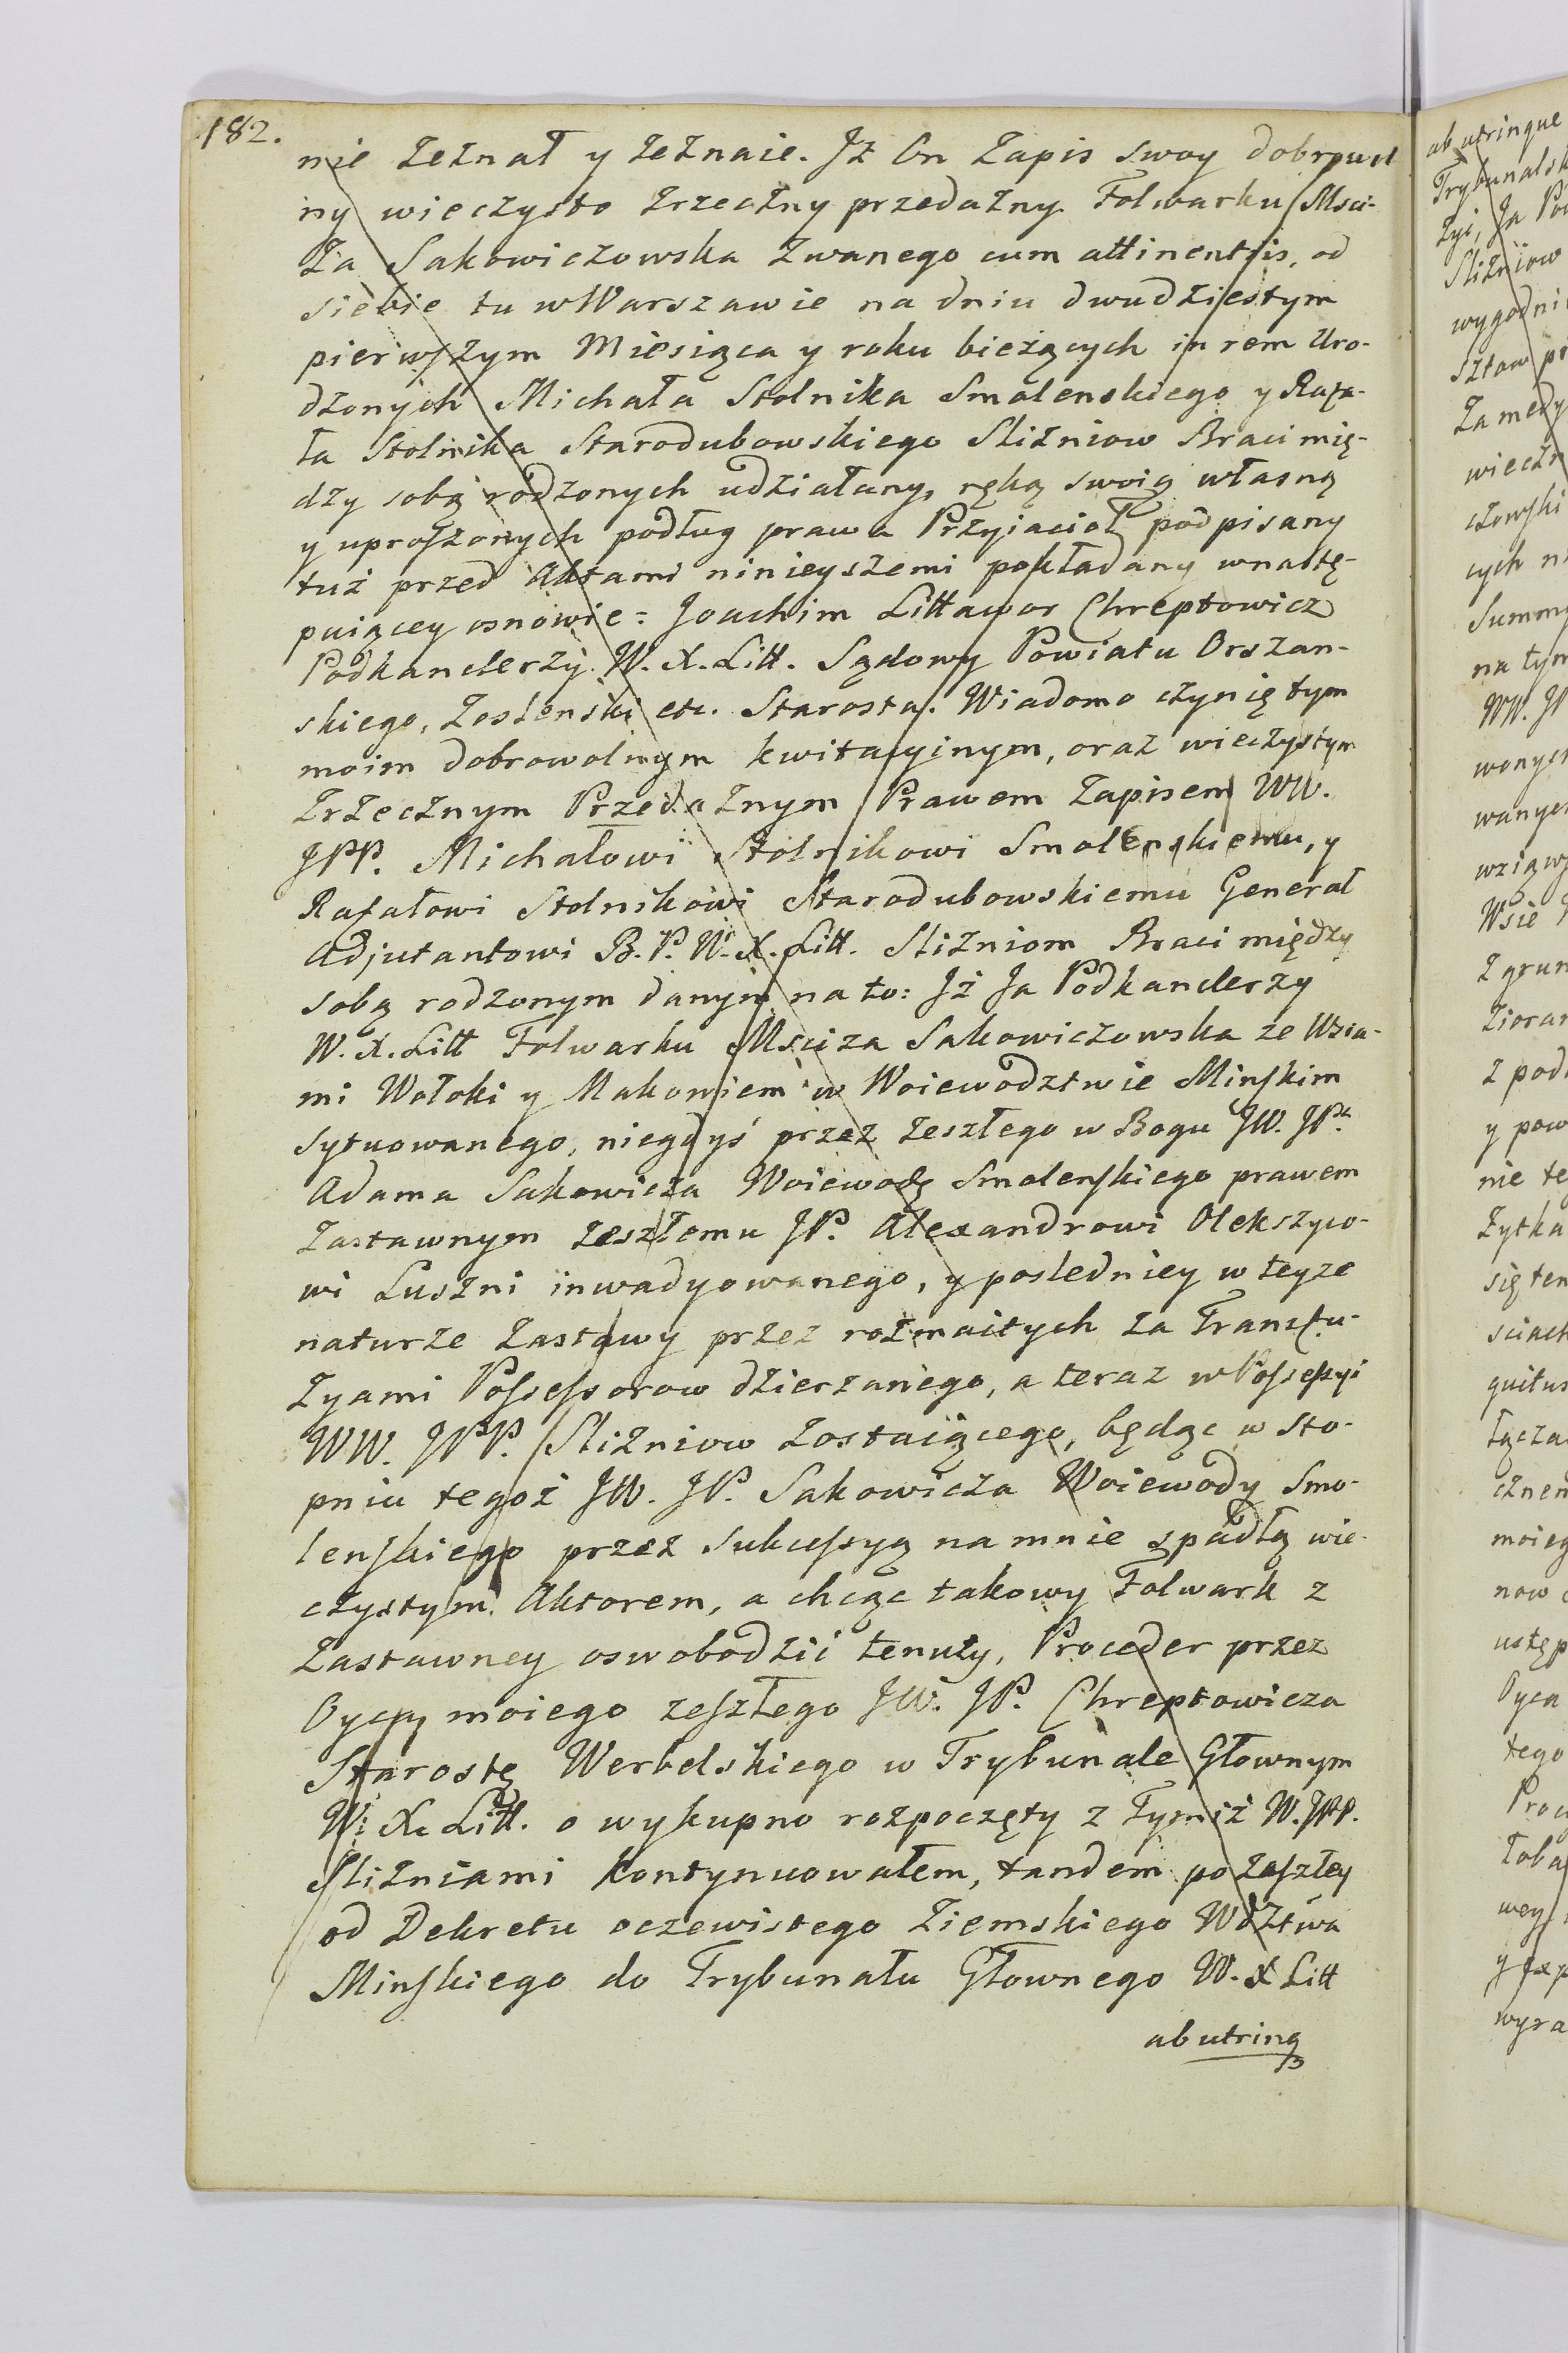 182.
nie zeznał y zeznaie. Iż On Zapis swoy dobrowol
ny wieczysto zrzeczny przedażny Folwarku Msci-
ża Sakowiczowska zwanego cum attinentiis, od
siebie tu w Warszawie na dniu dwudziestym
pierwszym Miesiąca y roku bieżących in rem Uro-
dzonych Michała Stolnika Smolenskiego y Rafa-
ła Stolnika Starodubowskiego Slizniow Braci mię-
dzy sobą rodzonych udziałany, ręką swoią własną
y uproszonych podług prawa Przyiacioł podpisany
tuż przed Aktami ninieyszemi pokładany w nastę-
puiącey osnowie: Joachim Littawor Chreptowicz
Podkanclerzy W. X. Litt. Sądowy Powiatu Orszan-
skiego, etc. Starosta. Wiadomo czynię tym
moim dobrowolnym kwitacyinym, oraz wieczystym
Zrzecznym Przedażnym Prawem Zapisem WW.
JPP. Michałowi Stolnikowi Smolenskiemu, y
Rafałowi Stolnikowi Starodubowskiemu Generał
Adjutantowi B. P. W. X. Litt. Slizniom Braci między
sobą rodzonym danym na to: Iż Ja Podkanclerzy
W. X. Litt Folwarku Msciza Sakowiczowska ze Wsia-
mi Wołoki y Makowiem w Woiewodztwie Minskim
sytuowanego, niegdyś przez zeszłego w Bogu JW. JPa.
Adama Sakowicza Woiewodę Smolenskiego prawem
Zastawnym zeszłemu JP. Alexandrowi Olekszyco-
wi Luszni inwadyowanego, y posledniey w teyze
naturze zastawy przez rożmaitych za Transfu-
zyami Possessorow dzierzanego, a teraz w Possessyi
WW. JPP. Slizniow zostaiącego, będąc w sto-
pniu tegoż JW. JP. Sakowicza Woiewody Smo-
lenskiego przez sukcessyą na mnie spadłą wie-
czystym Aktorem, a chcąc takowy Folwark z
Zastawney oswobodzić tenuty, Proceder przez
Oyca moiego zeszłego JW. JP. Chreptowicza
Starostę Werbelskiego w Trybunale Głownym
W. X. Litt. o wykupno rozpoczęty z tymiż W. JPP.
Slizniami kontynuowałem, tandem po zaszłey
od Dekretu oczewistego Ziemskiego Wdztwa
Minskiego do Trybunału Głownego W. X Litt
ab utrinq
ab utrinque
Trybunalsk
zyi, Ja Po
Slizniow
wygodni
sztow
za
wieczn
czowski
cych
Summ
na tym
WW. JP
wanych
wanych
Wsie
z grun
z pod
y pow
nie te
Zytka
się ten
sciach
quitus
łącza
cznem
moieg
now
ustęp
Oyca
tego
wey
wyra